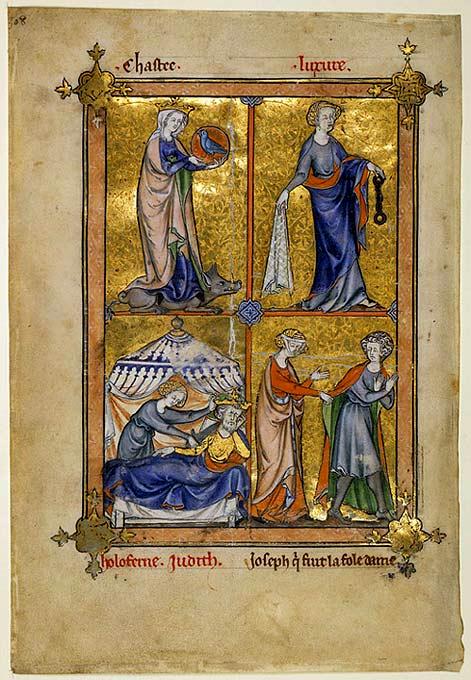 · Chastee ·
· luxure ·
holoferne · Judith ·
Joseph q̇ fiut la fole dame